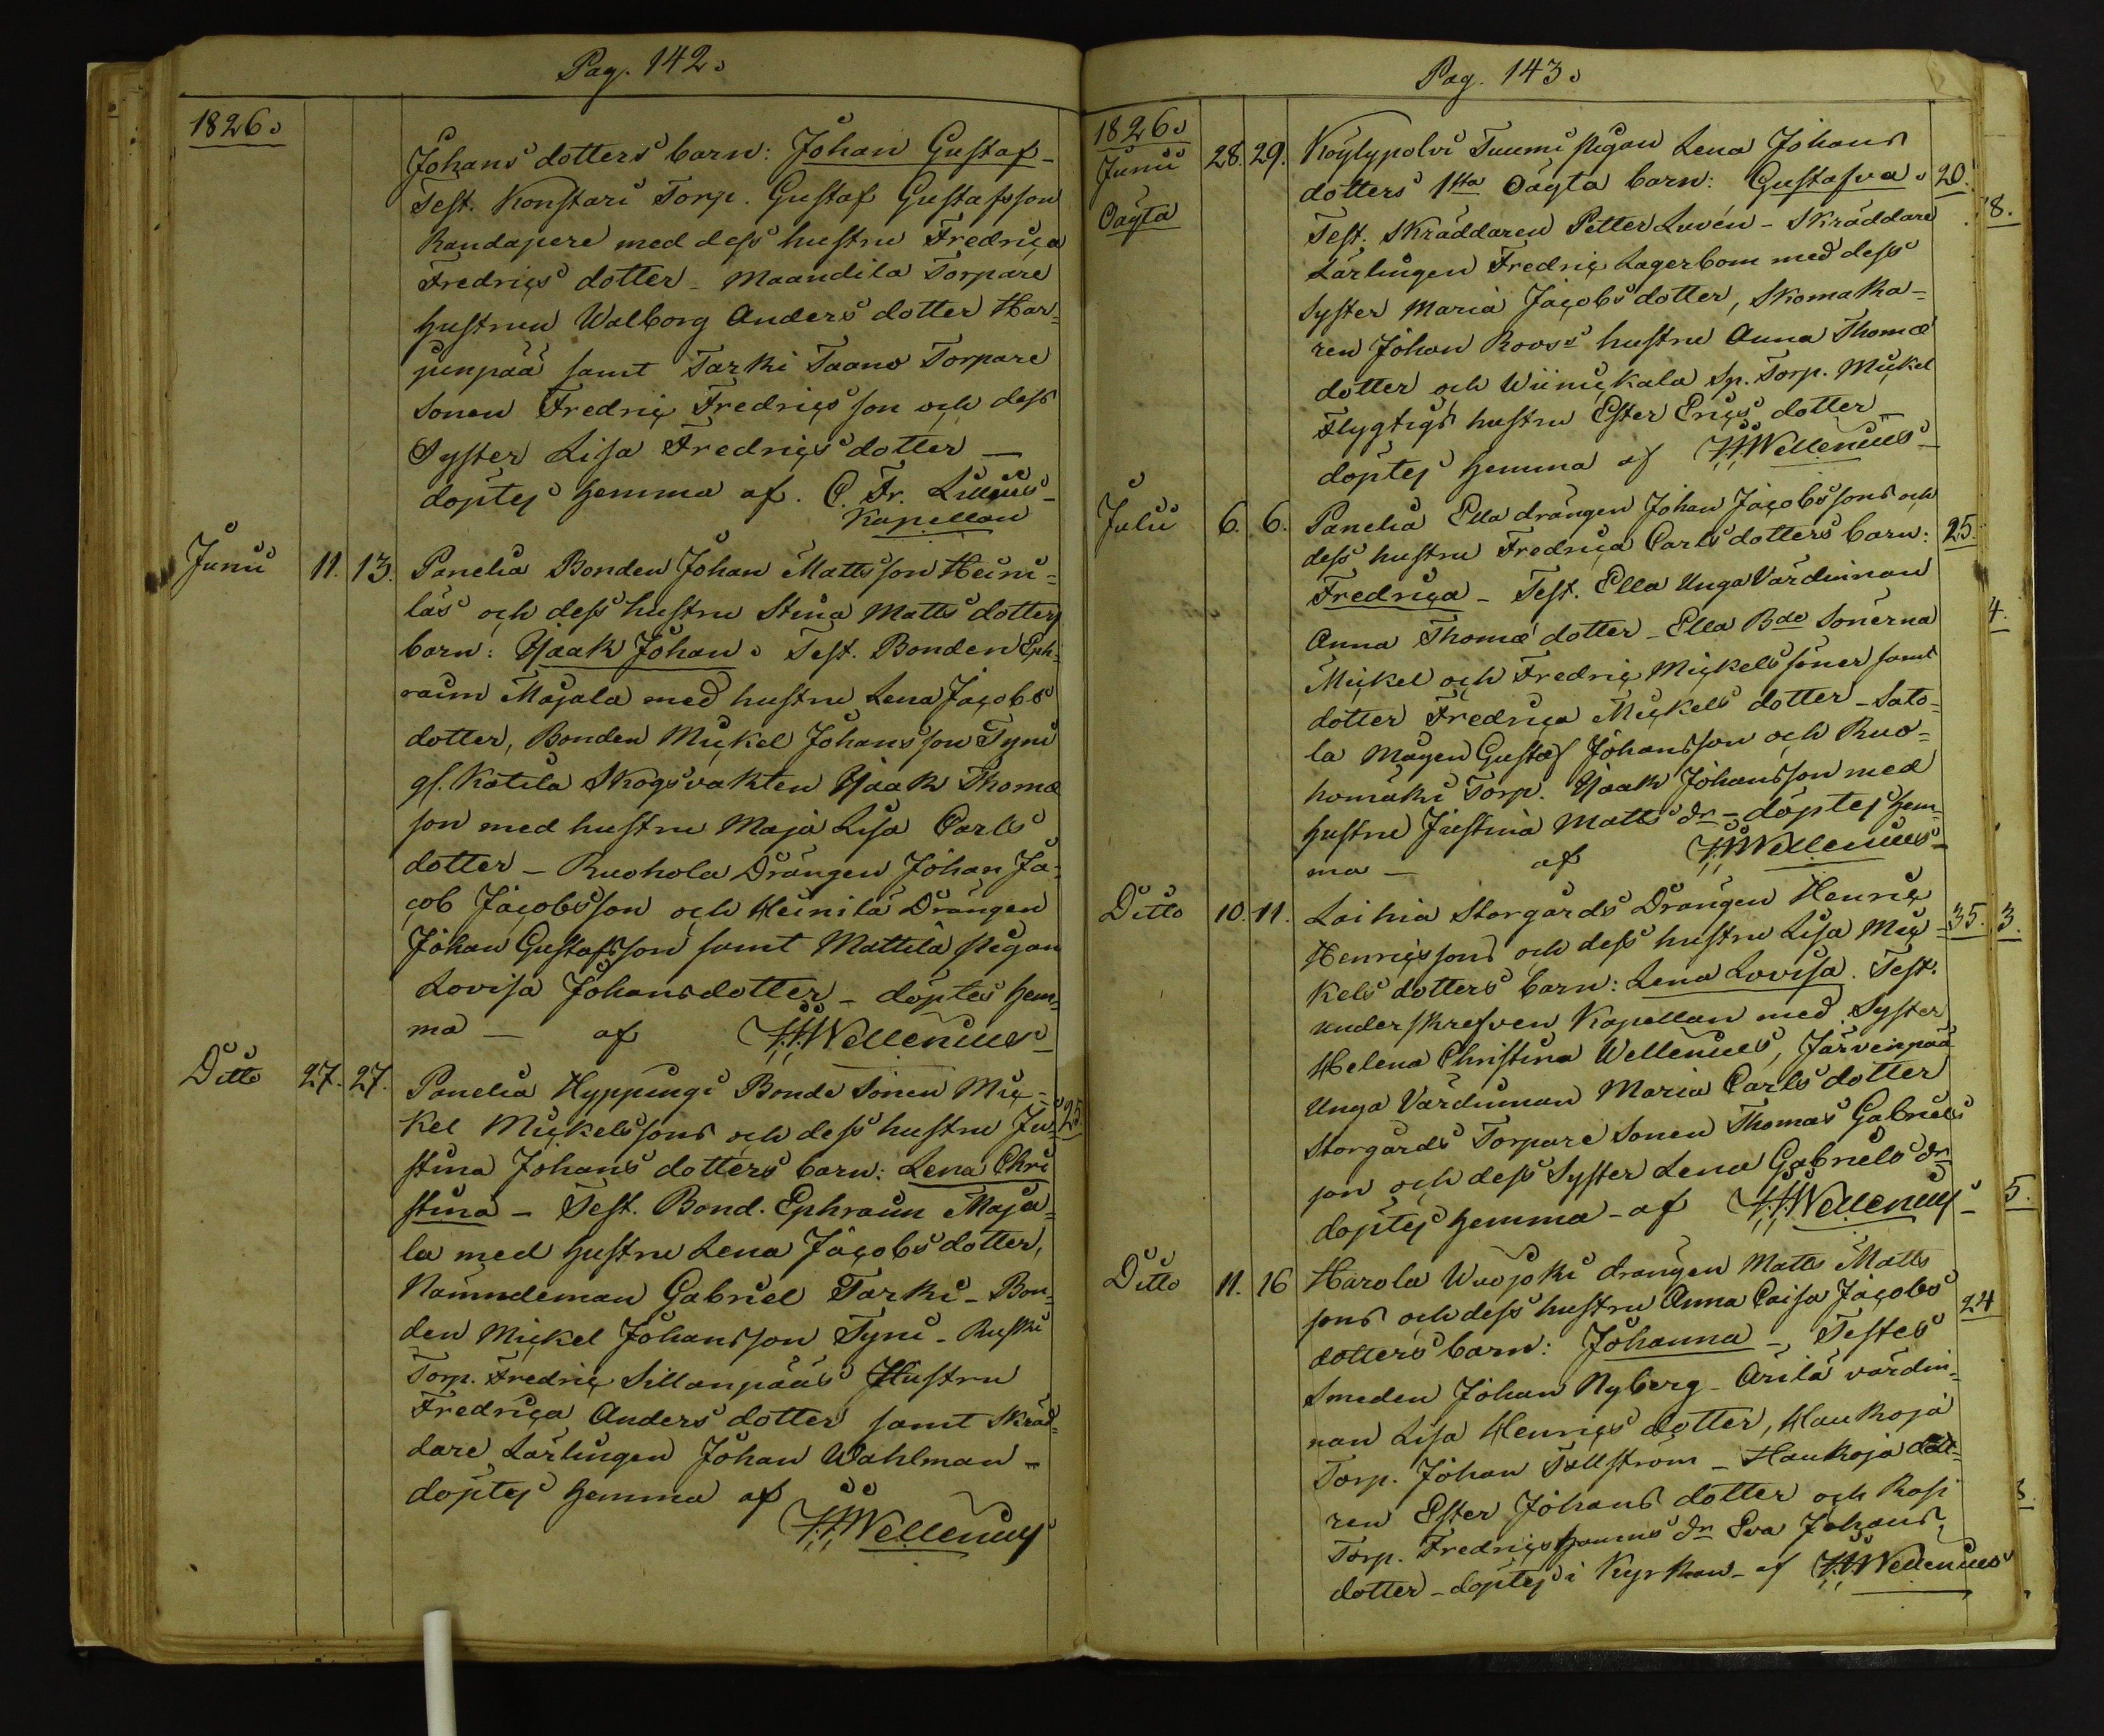 Pag. 142.
1826.
Johans dotters barn: Johan Gustaf-
Test. Konstari Torp. Gustaf Gustafsson
Randapere med dess hustru Fredrica
Fredrics dotter - Maandila Torpare
hustrun Walborg Anders dotter Har-
junpää samt Tarki Taano Torpare
Sonen Fredric Fredricsson och dess
Syster Lisa Fredrics dotter -
döptes hemma af. C. Fr. Lillius-
Kapellan
Junii 11. 13. Panelia Bonden Johan Mattsson Heini-
läs och dess hustru Stina Matts dotters
barn: Isaak Johan. Test. Bonden Eph-
raim Majala med hustru Lena Jacobs
dotter, Bonden Mickel Johansson Tyni
gl. Kotila Skogsvakten Isaak Thomæ
son med hustru Maja Lisa Carls
dotter - Ruohola Drängen Johan Ja-
cob Jacobsson och Heinilä Drängen
Johan Gustafsson samt Mattila pigan
Lovisa Johansdotter - döptes hem-
ma - af Wellenius-
Ditto 27. 27. Panelia Hyppingi Bonde Sonen Mic-
kel Mickelssons och dess hustru Ju- 25.
stina Johans dotters barn: Lena Chri
stina - Test. Bond. Ephraim Maja-
la med hustru Lena Jacobs dotter,
Nämndeman Gabriel Tarki - Bon-
den Mickel Johansson Tyni - Ruski
Torp. Fredric Sillanpääs Hustru
Fredrica Anders dotter samt Skräd-
dare Lärlingen Johan Wahlman -
döptes hemma af
Wellenius
Pag. 143.
1826.
Junii 28. 29. Köylypolvi Tuumi pigan Lena Johans
Oägta dotters 1sta Oägta barn: Gustafva. 20. 8.
Test. Skräddaren Petter Luvén - Skräddare
Lärlingen Fredric Lagerbom med dess
Syster Maria Jacobs dotter, Skomaka-
ren Johan Rooss hustru Anna Thomæ
dotter och Wiinickala Sp. Torp. Mickel
Flygtigs hustru Ester Erics dotter
döptes hemma af Wellenius-
Julii 6. 6. Panelia Ella drängen Johan Jacobssons och
dess hustru Fredrica Carls dotters barn: 25.
Fredrica - Test. Ella Unga Värdinnan 4.
Anna Thomæ dotter - Ella Bde Sönerna
Mickel och Fredric Mickelssöner samt
dotter Fredrica Mickels dotter - Sato-
la Mågen Gustaf Johansson och Ruo-
homäki Torp. Isaak Johansson med
hustru Justina Matts dr - döptes hem-
ma - af Wellenius-
Ditto 10. 11. Laihia Storgårds Drängen Henric
Henricssons och dess hustru Lisa Mic- 35. 3.
kels dotters barn: Lena Lovisa. Test.
underskrefven Kapellan med Syster
Helena Christina Wellenius, Järvenpää
Unga Värdinnan Maria Carls dotter
Storgårds Torpare Sonen Thomas Gabriels
son och dess Syster Lena Gabriels dr
döptes hemma - af Wellenius- 5.
Ditto 11. 16 Harola Wuojoki drängen Matts Matts
sons och dess hustru Anna Caisa Jacobs 24
dotters barn: Johanna - Testes
Smeden Johan Nyberg - Arila värdin-
nan Lisa Henrics dotter, Haukoja
Torp. Johan Tallström - Haukoja dott-
ren Ester Johans dotter och Rasi
Torp. Fredrics dr Eva Johans
dotter - döptes i Kyrkan - af Wellenius